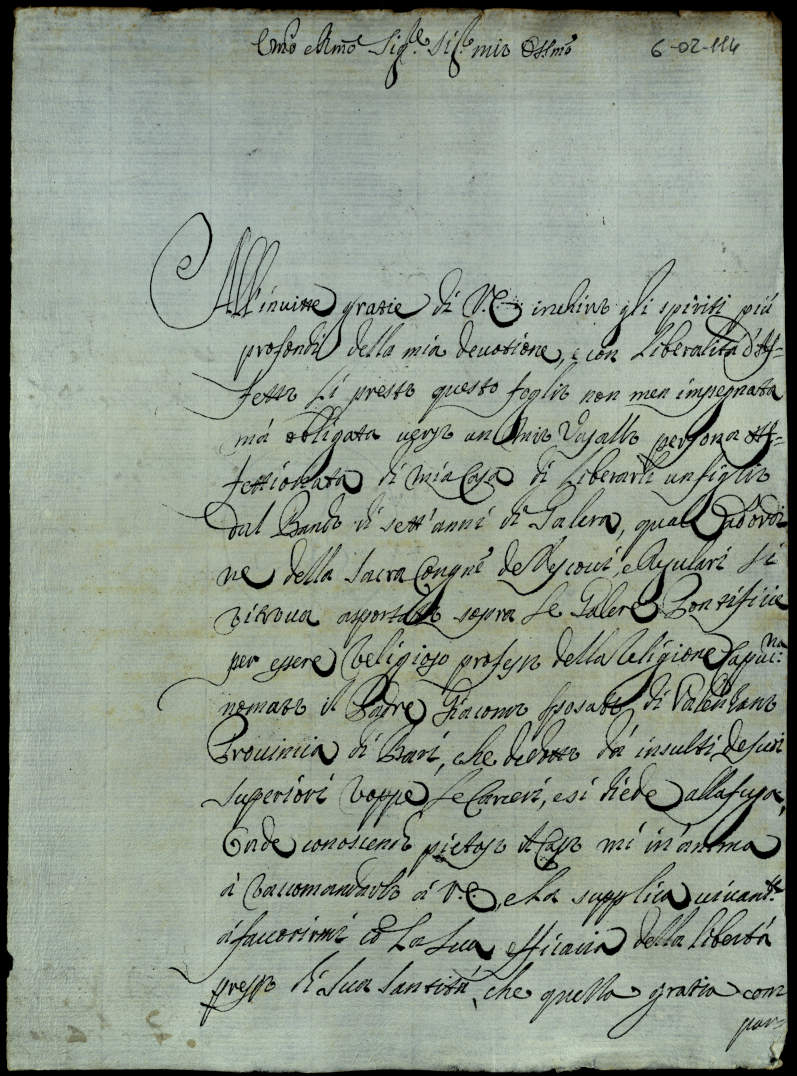 Emo e Rmo Sigre Sigre mio Ossmo
6-02-114
All'inuitte gratie di V.E. inchino gli spiriti più
profondi della mia deuotione, e con liberalità d'Af-
fetto li presto questo foglio non men impegnata
mà obligata uerso un mio Vasallo persona Af-
fettionata di mia Casa di liberarli un figlio
dal Bando di sett'anni di Galera, qual ad'ordi
ne della Sacra Congne de Vescoui, e Regulari si
ritroua asportato sopra le Galere Pontificie
per essere Religioso professo della Religione Capuci:na
nomato il Padre Giacomo di Valenzano
Prouincia di Bari, che da insulti de suoi
superiori roppe le Carceri, e si diede alla fuga,
Onde conoscendo pietoso il Caso mi in'anima
à raccomandarlo à V.E., e la supplica uiuamte
à fauorirmi co la sua efficacia della libertà
presso di Sua Santità, che quella gratia com
par-